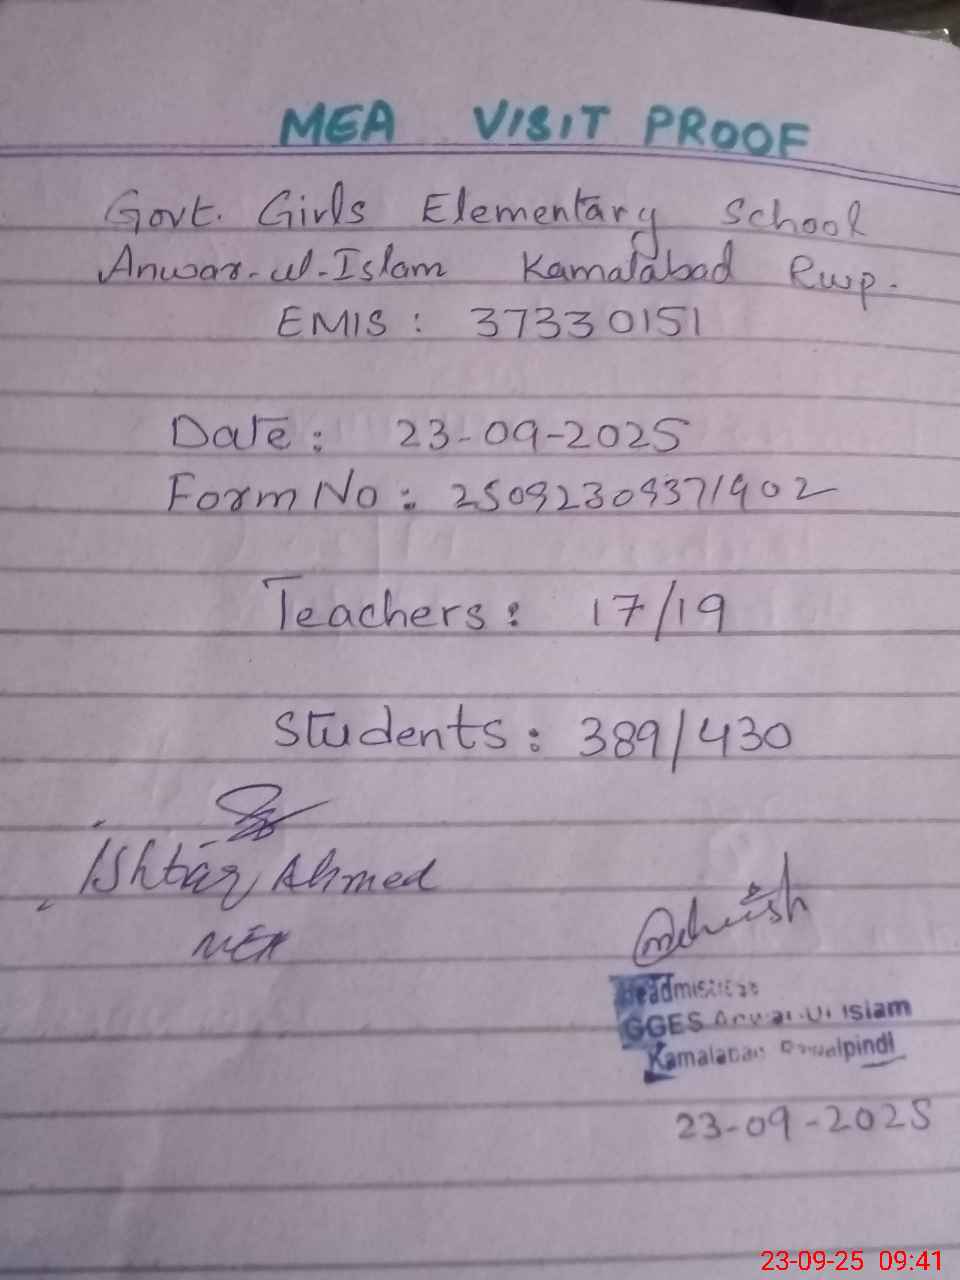 MEA VISIT PROOF
Govt. Girls Elementary School
Anwar-ul-Islam Kamalabad Rwp.
EMIS : 37330151
Date : 23-09-2025
Form No : 25092309371902
Teachers : 17/19
Students : 389/430
Ahmed
MEA
Headmistress
GGES Anwar-Ul Islam
Kamalabad Rawalpindi
23-09-2025
23-09-25 09:41